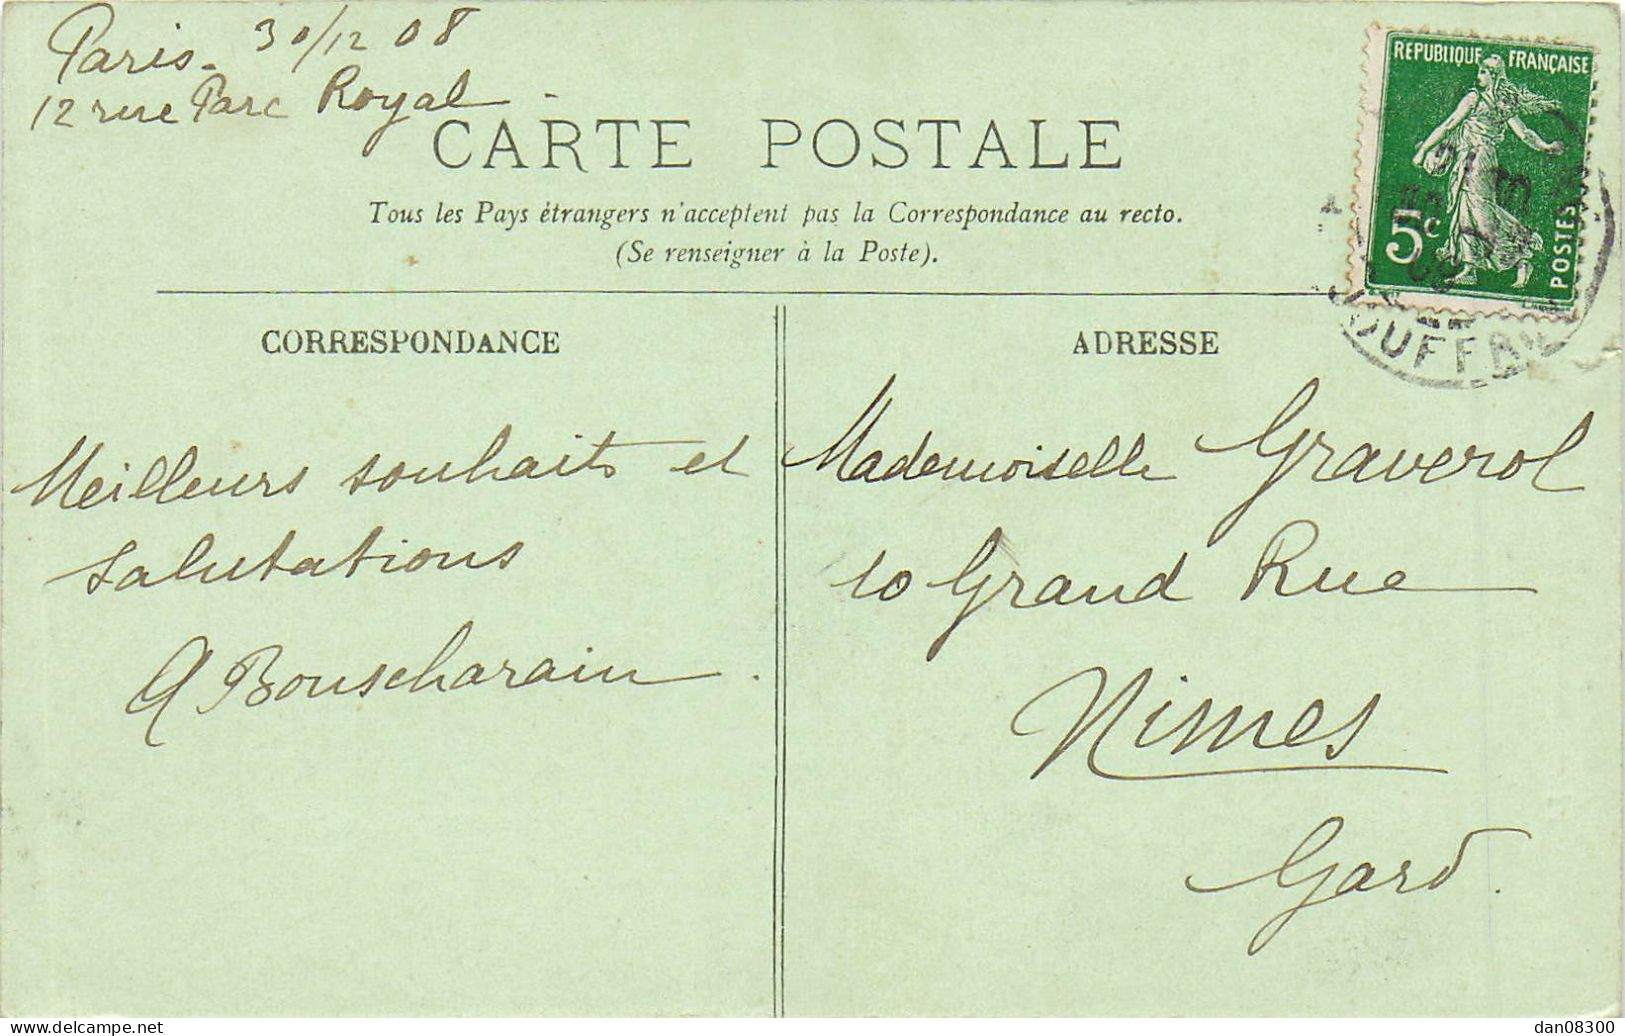 Paris. 30/12 08
12 rue Parc Royal
CARTE POSTALE
Tous les Pays étrangers n'acceptent pas la Correspondance au recto.
(Se renseigner à la Poste).
REPUBLIQUE FRANÇAISE
5c
POSTES
CORRESPONDANCE
Meilleurs souhaits et
salutations
A Bouscharain
ADRESSE
Mademoiselle Graverol
10 Grand Rue
Nimes
Gard.
dan08300